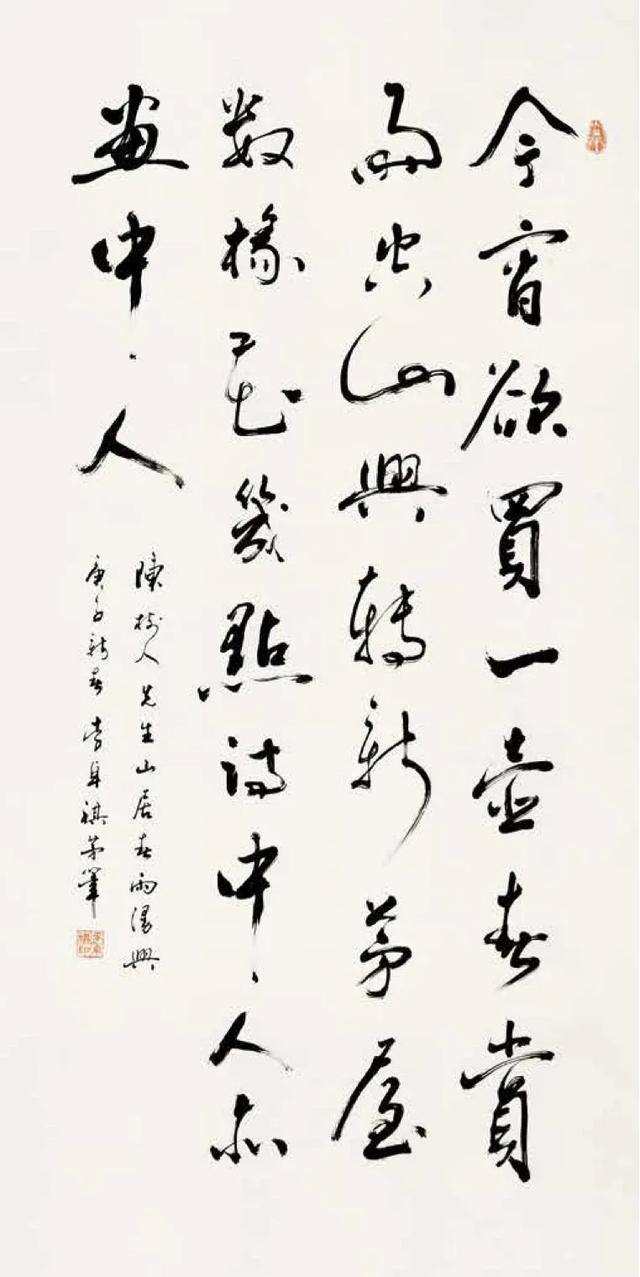 今宵欲買一壺春賞
雨空山興轉新茅屋
數椽花幾點詩中人亦
畫中人
陳樹人先生山居春雨漫興
庚子新春 李自祺茅筆